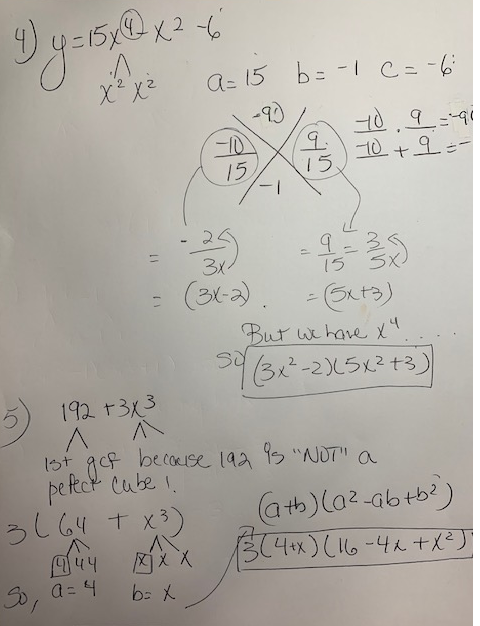 4) y=15x⁴-x²-6
x² x²
a=15 b=-1 c=-6
-90
-10/15 9/15
-1
-10 · 9 = -90
-10 + 9 = -
= -2/3x = 9/15 = 3/5x
= (3x-2). = (5x+3)
But we have x⁴....
So (3x²-2)(5x²+3)
5) 192 + 3x³
1st gcf because 192 is "NOT" a
pefect cube!
3(64 + x³)
4 4 4 x x x
(a+b)(a²-ab+b²)
3(4+x)(16-4x+x²)
So, a=4 b=x